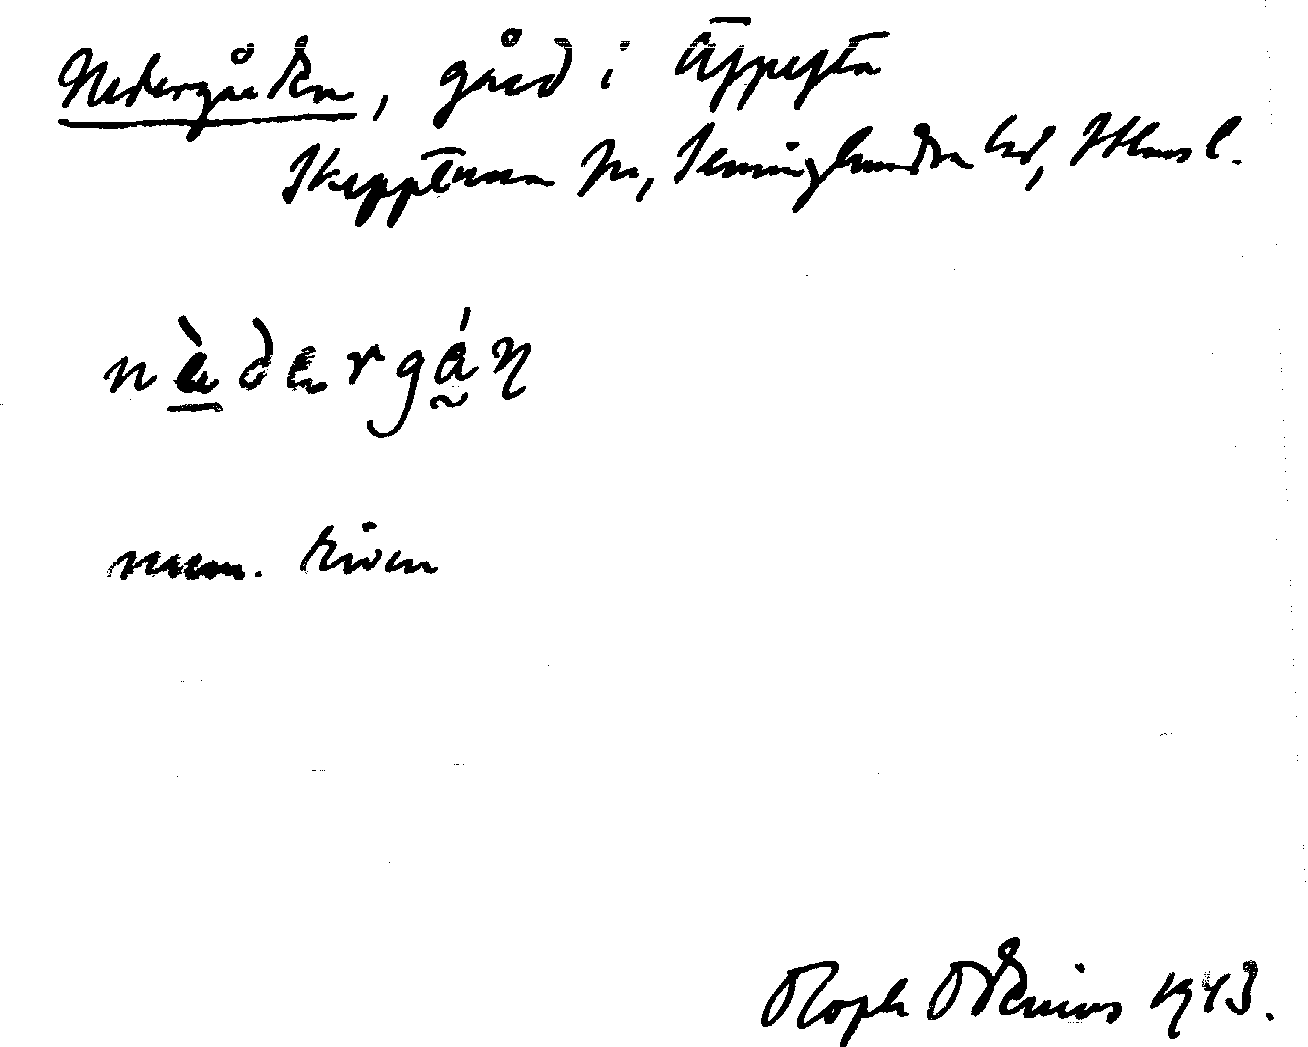 Nedergården, gård i Äspesta
Skepptuna sn, Seminghundra hd, Sthms l.
nȁdergán
num. riven
Olof Odenius 1943.